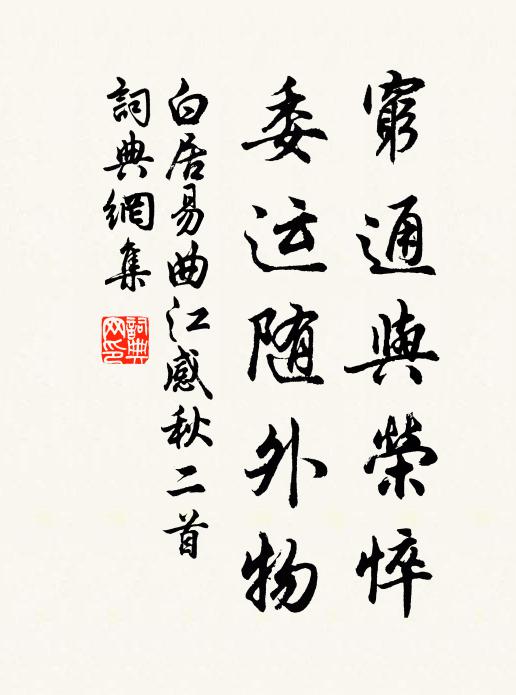 窮通與榮悴
委运随外物
白居易曲江感秋二首
詞典網集
詞典网印